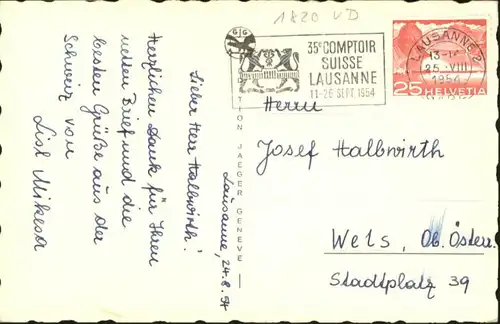 1820 VD
35e COMPTOIR
SUISSE
LAUSANNE
11-26 SEPT. 1954
LAUSANNE 2
25. VIII
1954
25 HELVETIA
Lausanne, 24.8.54
Lieber Herr Halbwirth!
Herzlichen Dank für Ihren
netten Brief und die
besten Grüße aus der
Schweiz von
Lisl Mikesa
JAEGER GENEVE
Herrn
Josef Halbwirth
Wels, Ob. Österr.
Stadtplatz 39